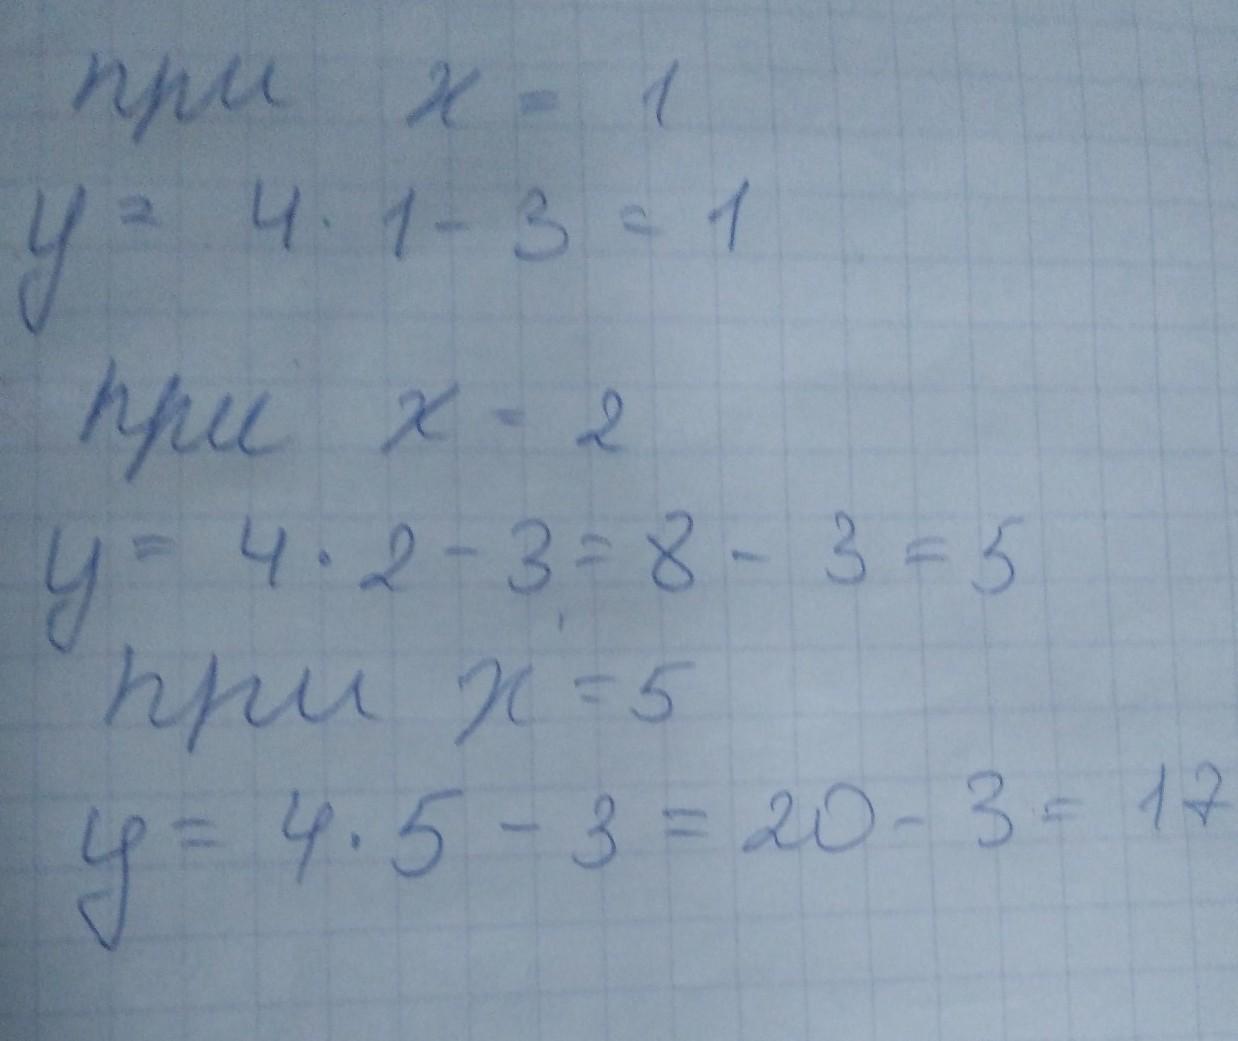 при x = 1
y = 4 · 1 - 3 = 1
при x = 2
y = 4 · 2 - 3 = 8 - 3 = 5
при x = 5
y = 4 · 5 - 3 = 20 - 3 = 17